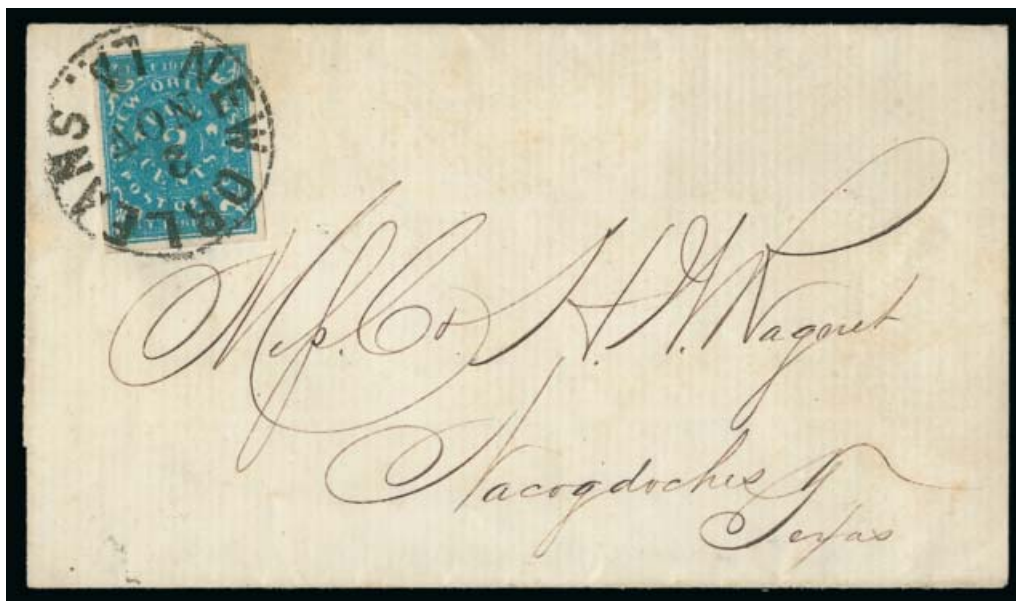 NEW ORLEANS LA.
NOV
8
NEW ORLEANS
2
CENTS
POST OFFICE
Messrs. C. & H. W. Raguet
Nacogdoches
Texas